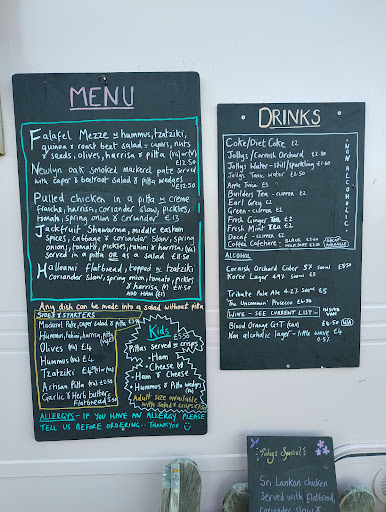 MENU
Falafel Mezze w hummus, tzatziki,
quinoa & roast beet salad w capers, nuts
& seeds, olives, harrisa & pitta (va) or (v)
£12.50
Newlyn oak smoked mackerel pate served
with caper & beetroot salad & pitta wedges
£12.50
Pulled chicken in a pitta w creme
fraiche, harrisa, coriander slaw, pickles,
tomato, spring onion & coriander £13
Jackfruit Shawarma, middle eastern
spices, cabbage & coriander slaw, spring
onions, tomato, pickles, tahini & harrisa (va)
served in a pitta OR as a salad £11
Halloumi flatbread, topped w tzatziki
coriander slaw, spring onion, tomato, pickles
& harrisa (v) £11.50
ADD HAM (£1)
Any dish can be made into a salad without pitta
SIDES & STARTERS
Mackerel Pate, caper salad & pitta
Hummus, tahini, harrisa, pitta
Olives (va) £4
Hummus (va) £4
Tzatziki £4
Artisan Pitta (va) £2.50
Garlic & Herb butter
flatbread £3.50
Kids
£5.50
Pittas served w crisps
• Ham
• Cheese (v)
• Ham & Cheese
• Hummus & Pitta wedges
(va)
Adult size available
with salad & crisps £7.50
ALLERGYS - IF YOU HAVE AN ALLERGY PLEASE
TELL US BEFORE ORDERING - THANKYOU
DRINKS
NON ALCOHOLIC
Coke/Diet Coke £2
Jollys/Cornish Orchard £2.80
Jollys Water - still/sparkling £1.60
Jollys Tonic water £2.50
Apple Juice £3
Builders Tea - currer £2
Earl Grey £2
Green - currer £2
Fresh Ginger Tea £2
Fresh Mint Tea £2
Decaf - currer £2
Coffee Cafetiere - BLACK
ALCOHOL
Cornish Orchard Cider 5% 500ml £5.50
Korev Lager 4.8% 500ml £5
Tribute Pale Ale 4.2% 500ml £5
The Uncommon Prosecco £6.50
WINE - SEE CURRENT LIST - INSIDE VAN
Blood Orange G+T (can) £4.50
Non alcoholic lager - little wave £4
0.5%
Todays Special
Sri Lankan chicken
served with flatbread,
coriander slaw &